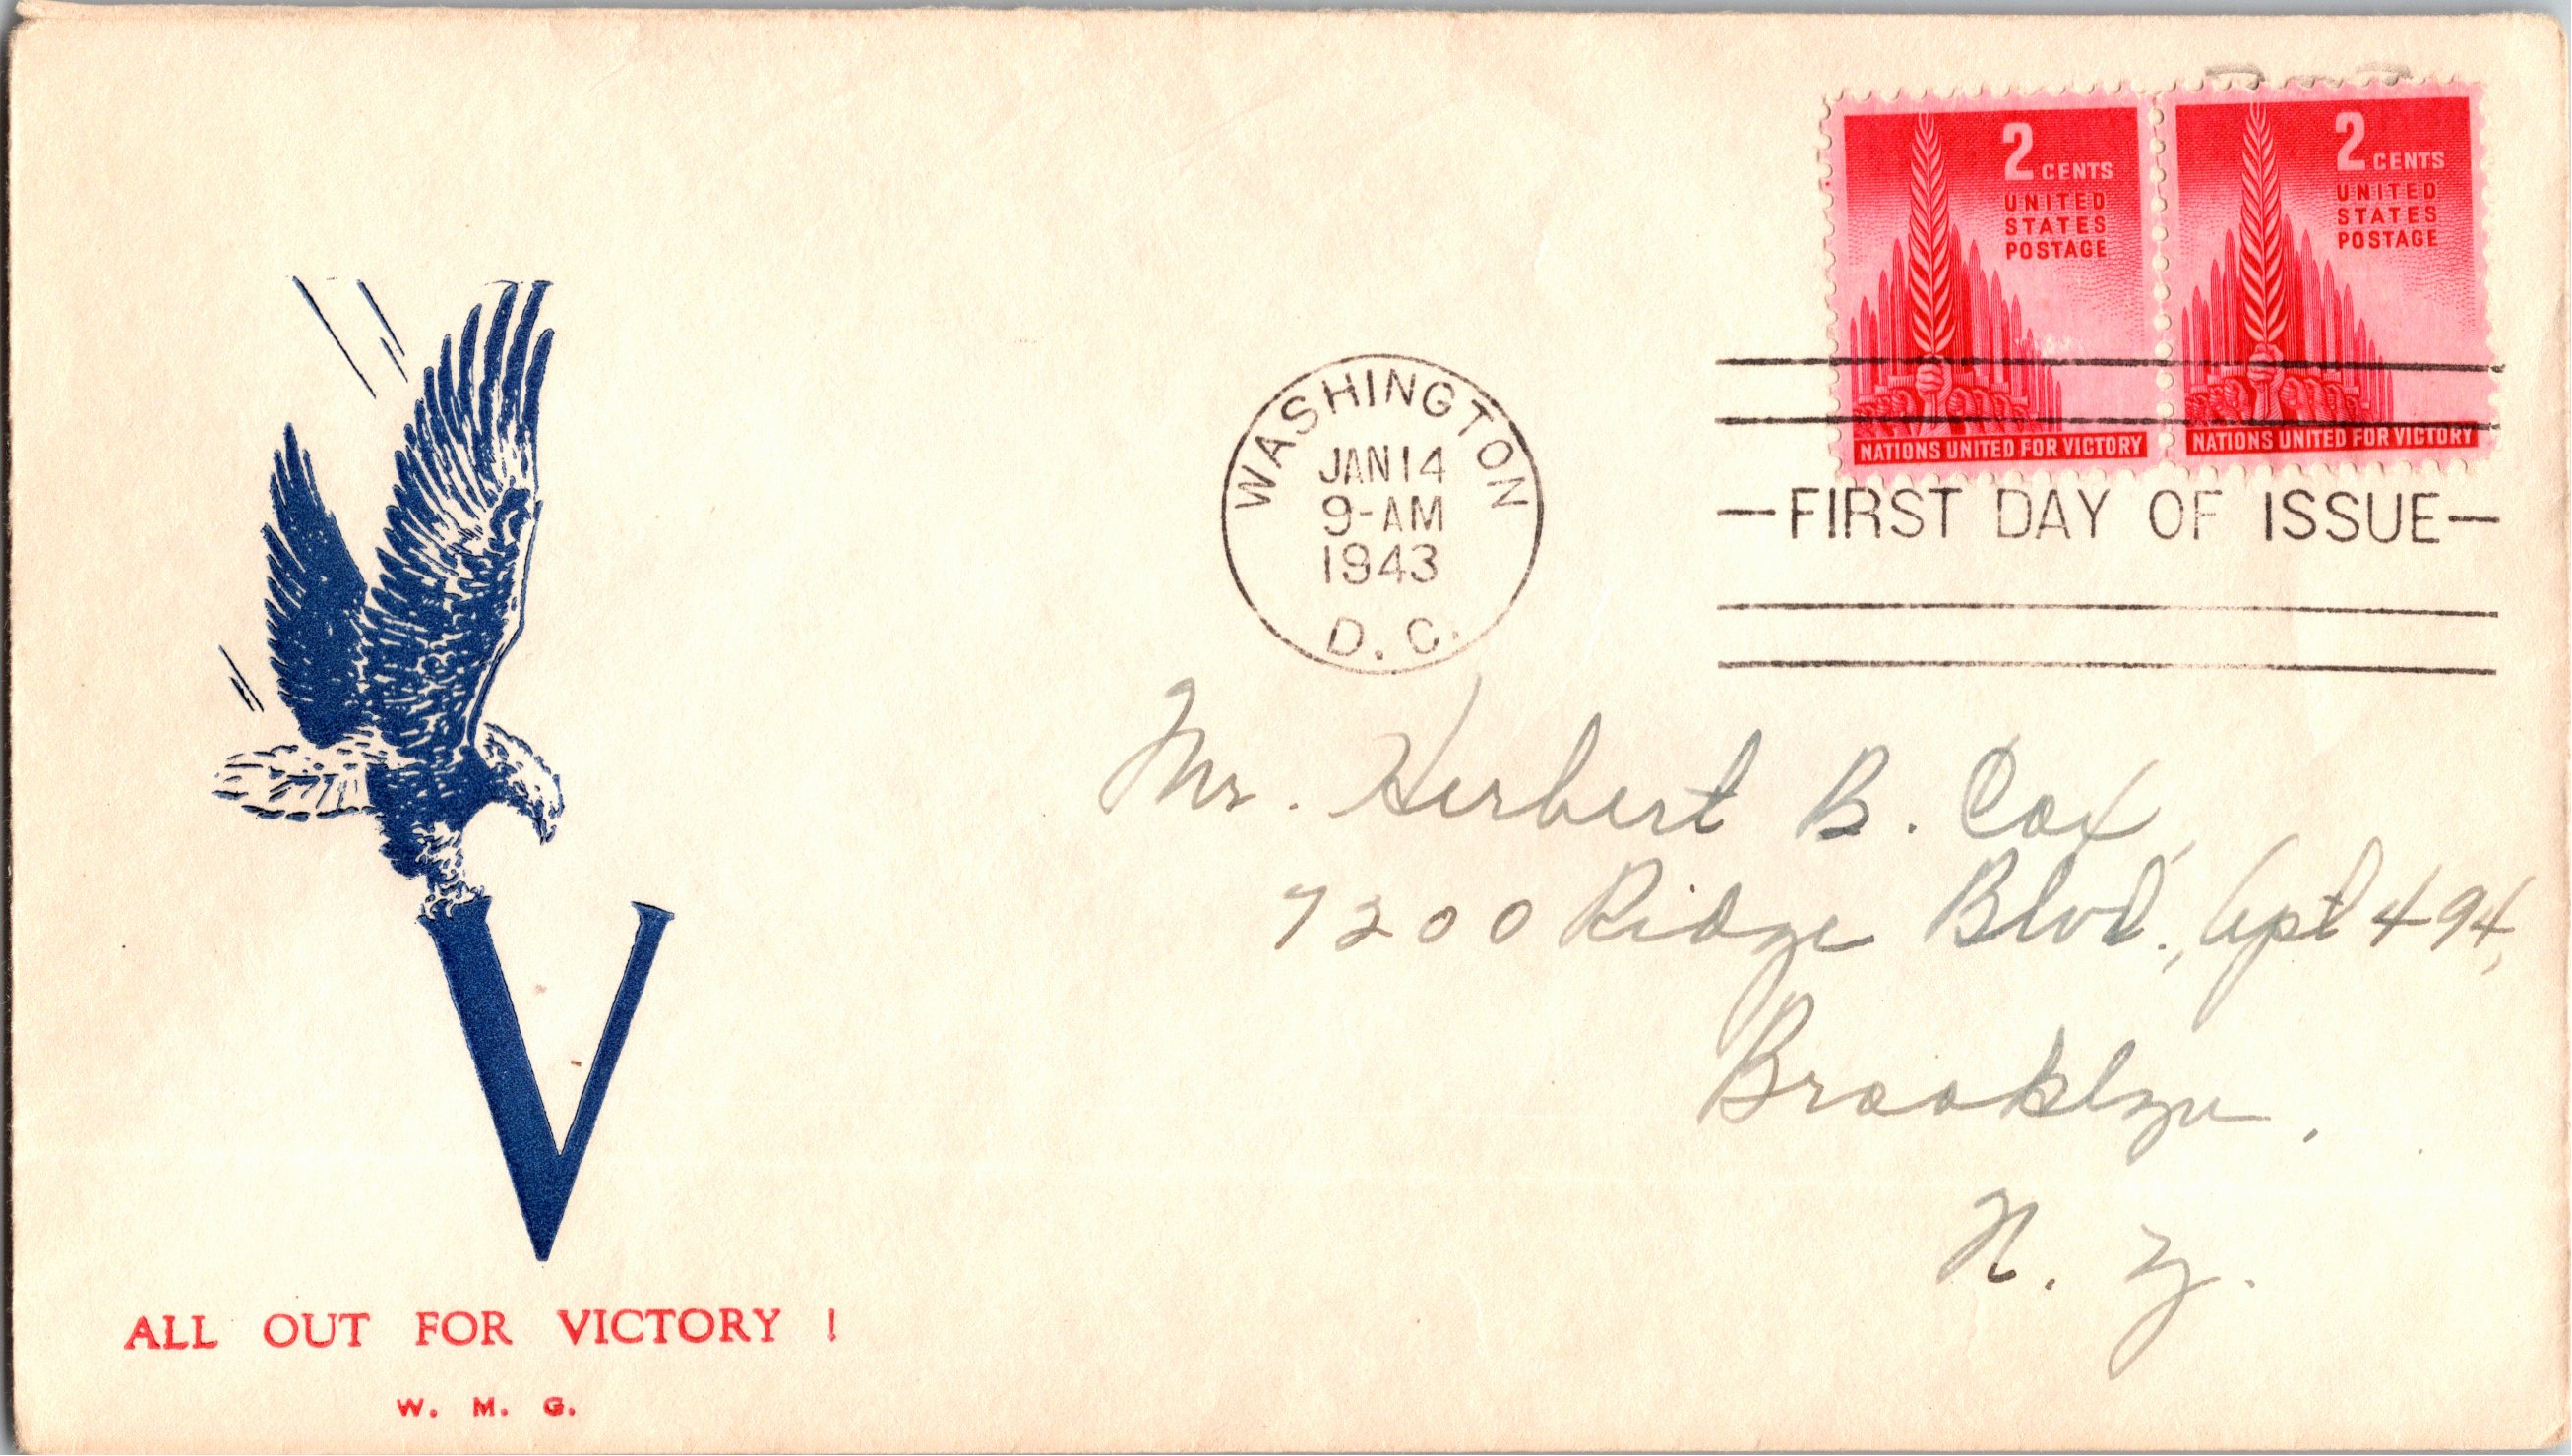 2 CENTS
UNITED
STATES
POSTAGE
NATIONS UNITED FOR VICTORY
2 CENTS
UNITED
STATES
POSTAGE
NATIONS UNITED FOR VICTORY
WASHINGTON
JAN 14
9-AM
1943
D. C.
—FIRST DAY OF ISSUE—
Mr. Herbert B. Cox,
7200 Ridge Blvd., Apt 494,
Brooklyn,
N. Y.
V
ALL OUT FOR VICTORY !
W. M. G.